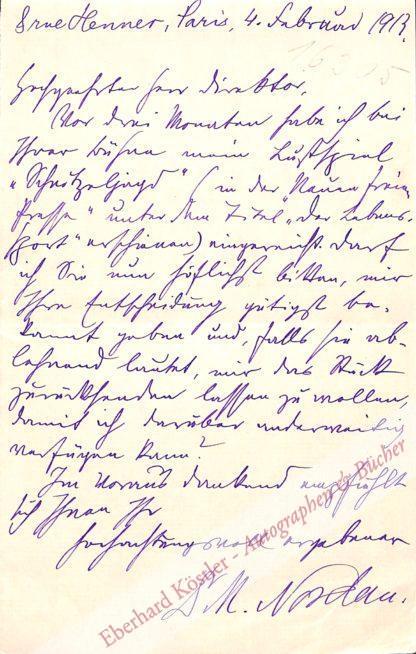 8 rue Henner, Paris, 4. Februar 1913.
Hochgeehrter Herr Direktor,
Vor drei Monaten habe ich bei
Ihrer Bühne mein Lustspiel
„Schnitzeljagd“ (in der Neuen Freien
Presse“ unter dem Titel „Der Lebens-
sport“ erschienen) eingereicht. Darf
ich Sie nun höflichst bitten, mir
Ihre Entscheidung gütigst be-
kannt geben und, falls sie ab-
lehnend lautet, mir das Stück
zurücksenden lassen zu wollen,
damit ich darüber anderweitig
verfügen kann?
Im Voraus dankend empfiehlt
sich Ihnen Ihr
hochachtungsvoll ergebener
Dr M. Nordau.
Eberhard Köstler - Autographen & Bücher